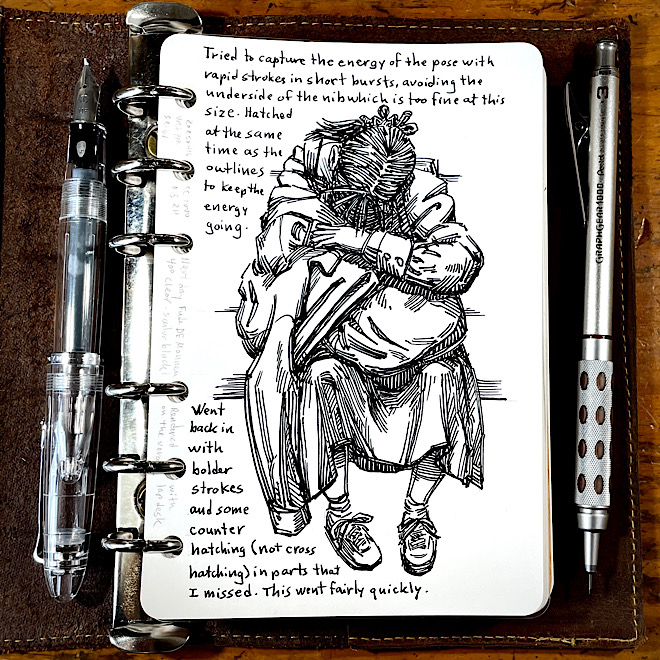 Tried to capture the energy of the pose with
rapid strokes in short bursts, avoiding the
underside of the nib which is too fine at this
size. Hatched
at the same
time as the
outlines
to keep the
energy
going.
Went
back in
with
bolder
strokes
and some
counter
hatching (not cross
hatching) in parts that
I missed. This went fairly quickly.
GRAPHGEAR 1000
Pentel
3